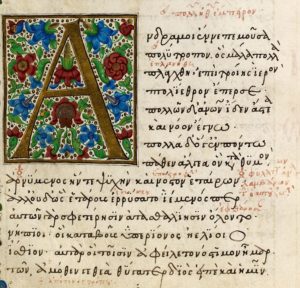 Ἄνδρα μοι ἔννεπε μοῦσα
πολύτροπον. ὃς μάλα πολλὰ
πλάγχθη. ἐπεὶ τροίης ἱερὸν
πτολίεθρον ἔπερσε
πολλῶν δ' ἀνθρώπων ἴδεν ἄστεα
καὶ νόον ἔγνω
πολλὰ δ' ὅγ' ἐν πόντω
πάθεν ἄλγεα ὃν κατὰ θυμὸν
ἀρνύμενος ἥν τε ψυχὴν καὶ νόστον ἑταίρων
ἀλλ' οὐδ' ὣς ἑτάρους ἐρρύσατο ἱέμενός περ
αὐτῶν γὰρ σφετέρησιν ἀτασθαλίησιν ὄλοντο
νήπιοι οἳ κατὰ βοῦς ὑπερίονος ἠελίοιο
ἤσθιον αὐτὰρ ὁ τοῖσιν ἀφείλετο νόστιμον ἦμαρ
τῶν ἁμόθεν γε θεὰ θύγατερ διὸς εἰπὲ καὶ ἡμῖν